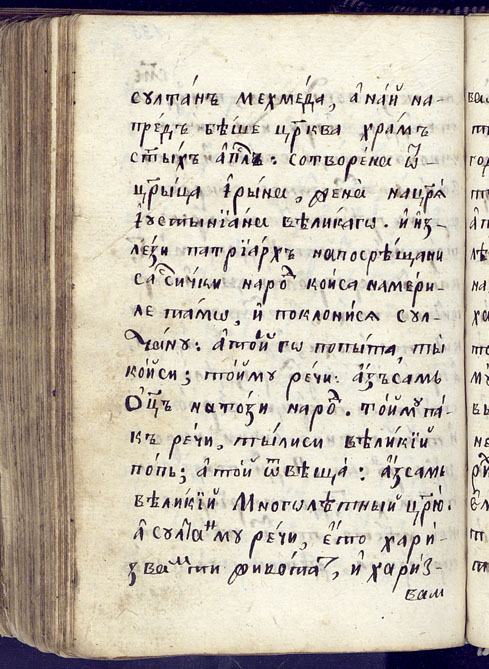 султа́нъ мехме́да, а҆ на́й на-
пре́дъ бѣ́ше цр҃ква храⷨ́ъ
ст҃ы́хъ а҆пⷭ҇лъ : сотворе́на ѿ-
цр҃и́ца і҆ри́на, жена̀ нацр҃ѧ̀
і҆ꙋстынїа́на вели́кагѡ . и҆ и҆з-
ле́зи патрїа́рхъ напосрѣ́щани
саⷭ҇ си́чки наро́ⷣ кои́са намери-
ле та́мѡ, и҆ поклони́сѧ сꙋл-
та́нꙋ : а҆ то́й гѡ попы́та, ты̀
ко́йси ; то́ймꙋ ре́чи : а҆́зъсамь
ѻ҆ц҃ъ нато́зи наро́ⷣ . то́ймꙋ па́-
къ ре́чи, ты́лиси вѣли́кїй
по́пь ; а҆ то́й ѿвѣща̀ : а҆́зсамь
вѣли́кїй многолѣ́тный цр҃ю̀.
а҆ сꙋлта́ⷩмꙋ ре́чи, є҆́то хари́-
зваⷨ ти живо́таⷮ, и҆ хари́з-
вам